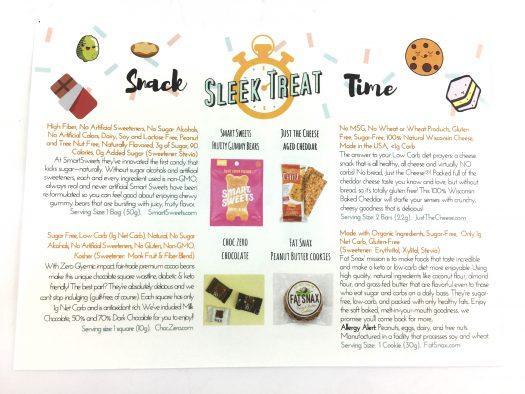 Snack
SLEEK TREAT
Time
High Fiber, No Artificial Sweeteners, No Sugar Alcohols,
No Artificial Colors, Dairy, Soy and Lactose Free, Peanut
and Tree Nut Free, Naturally Flavored, 3g of Sugar, 90
Calories, 0g Added Sugar (Sweetener: Stevia)
At SmartSweets they've innovated the first candy that
kicks sugar—naturally. Without sugar alcohols and artificial
sweeteners, each and every ingredient used is non-GMO,
always real and never artificial. Smart Sweets have been
re-formulated so you can feel good about enjoying chewy
gummy bears that are bursting with juicy, fruity flavor.
Serving Size 1 Bag (50g). SmartSweets.com
Sugar Free, Low Carb (1g Net Carb), Natural, No Sugar
Alcohols, No Artificial Sweeteners, No Gluten, Non-GMO,
Kosher (Sweetener: Monk Fruit & Fiber Blend)
With Zero Glycemic impact, fair-trade premium cocoa beans
make this unique chocolate square waistline, diabetic & keto
friendly! The best part? They're absolutely delicious and we
can't stop indulging (guilt-free, of course). Each square has only
1g Net Carb and is antioxidant rich. We've included Milk
Chocolate, 50% and 70% Dark Chocolate for you to enjoy!
Serving size: 1 square (10g). ChocZero.com
SMART SWEETS
FRUITY GUMMY BEARS
SMART
SWEETS
JUST THE CHEESE
AGED CHEDDAR
CHOC ZERO
CHOCOLATE
FAT SNAX
PEANUT BUTTER COOKIES
FAT SNAX
No MSG, No Wheat or Wheat Products, Gluten-
Free, Sugar-Free, 100% Natural Wisconsin Cheese,
Made in the USA, <1g Carb
The answer to your Low Carb diet prayers: a cheese
snack that is all healthy, all cheese and virtually NO
carbs! No bread, Just the Cheese
cheddar cheese taste you know and love, but without
bread, so it's totally gluten free! The 100% Wisconsin
Baked Cheddar will starte your senses with crunchy,
cheesy goodness that is delicious!
Serving Size: 2 Bars (22g). JustTheCheese.com
Made with Organic Ingredients, Sugar-Free, Only 1g
Net Carb, Gluten-Free
(Sweetener: Erythritol, Xylitol, Stevia)
Fat Snax mission is to make foods that taste incredible
and make a keto or low-carb diet more enjoyable. Using
high quality, natural ingredients like coconut flour, almond
flour, and grass-fed butter that are flavorful even to those
who eat sugar and carbs on a daily basis. They're sugar-
free, low-carb, and packed with only healthy fats. Enjoy
the soft baked, melt-in-your-mouth goodness, we
promise you'll come back for more.
Allergy Alert: Peanuts, eggs, dairy, and tree nuts.
Manufactured in a facility that processes soy and wheat.
Serving Size: 1 Cookie (30g). FatSnax.com